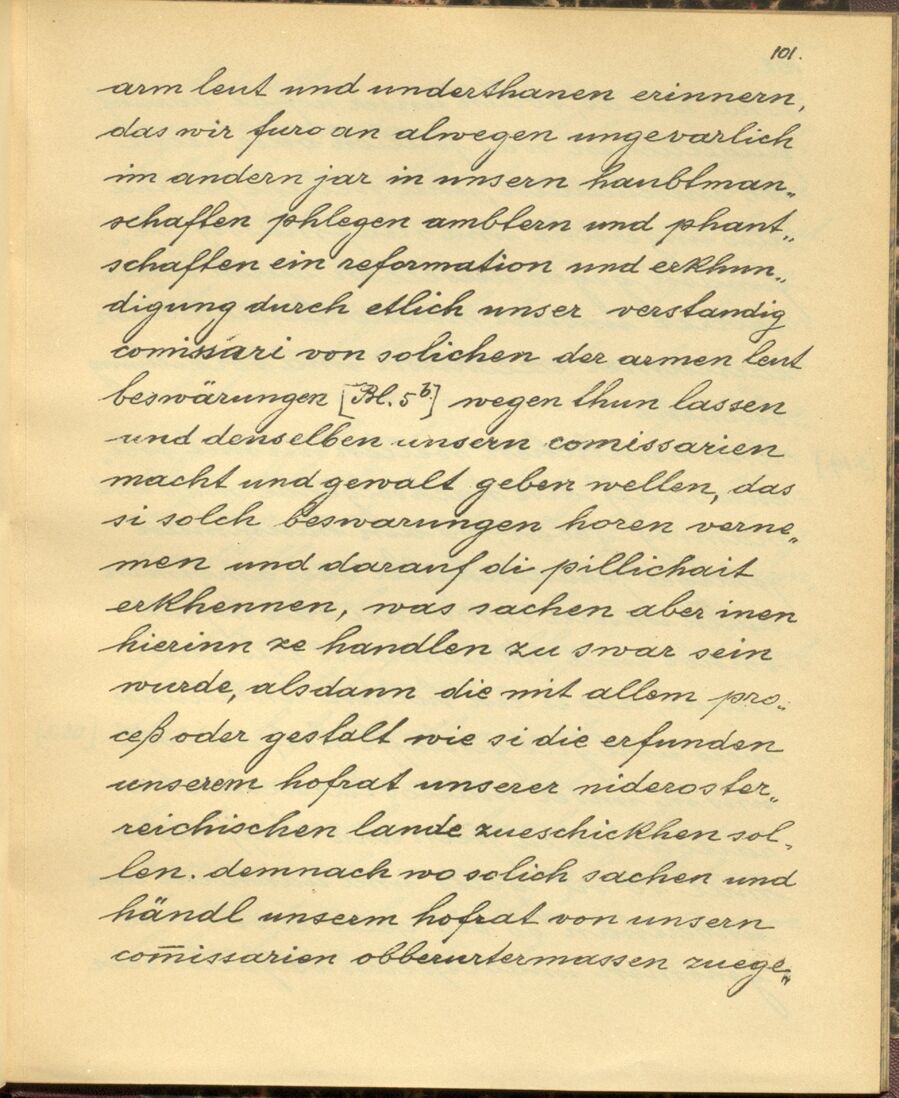 101.
arm leut und underthanen erinnern,
das wir furo an alwegen ungevarlich
im andern jar in unsern haubtman„
schaften phlegen ambtern und phant„
schaften ein reformation und erkhun„
digung durch etlich unser verstandig
comissari von solichen der armen leut
beswärungen [Bl. 5b.] wegen thun lassen
und denselben unsern comissarien
macht und gewalt geben wellen, das
si solch beswarungen horen verne„
men und darauf di pillichait
erkhennen, was sachen aber inen
hierinn ze handlen zu swar sein
wurde, alsdann die mit allem pro„
ceß oder gestalt wie si die erfunden
unserem hofrat unserer nideroster„
reichischen lande zueschickhen sol„
len. demnach wo solich sachen und
händl unserm hofrat von unsern
com̅issarien obberurtermassen zuege„